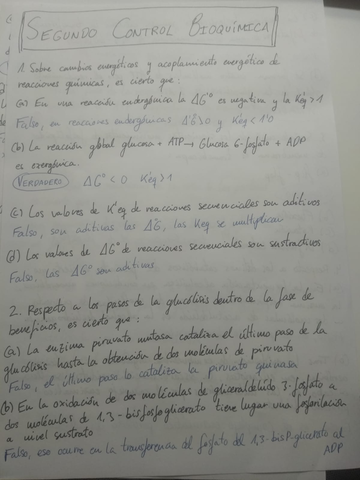 SEGUNDO CONTROL BIOQUÍMICA
1. Sobre cambios energéticos y acoplamiento energético de
reacciones químicas, es cierto que:
(a) En una reacción endergónica la ΔG'° es negativa y la K'eq > 1
Falso, en reacciones endergónicas ΔG > 0 y K'eq < 1'0
(b) La reacción global glucosa + ATP → Glucosa 6-fosfato + ADP
es exergónica.
VERDADERO ΔG° < 0 K'eq > 1
(c) Los valores de K'eq de reacciones secuenciales son aditivos
Falso, son aditivas las ΔG, las Keq se multiplican
(d) Los valores de ΔG° de reacciones secuenciales son sustractivos
Falso, las ΔG° son aditivas.
2. Respecto a los pasos de la glucólisis dentro de la fase de
beneficios, es cierto que:
(a) La enzima piruvato mutasa cataliza el último paso de la
glucólisis hasta la obtención de dos moléculas de piruvato
Falso, el último paso lo cataliza la piruvato quinasa
(b) En la oxidación de dos moléculas de gliceraldehído 3-fosfato a
dos moléculas de 1,3-bisfosfoglicerato tiene lugar una fosforilación
a nivel sustrato
Falso, eso ocurre en la transferencia del fosfato del 1,3-bisP-glicerato al
ADP